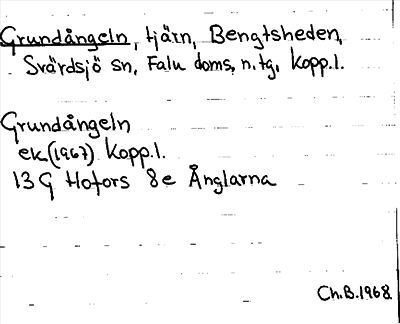 Grundångeln, tjärn, Bengtsheden,
Svärdsjö sn, Falu doms. n. tg, Kopp.l.
Grundångeln
ek (1967) Kopp.l.
13 G Hofors 8e Ånglarna
Ch.B.1968